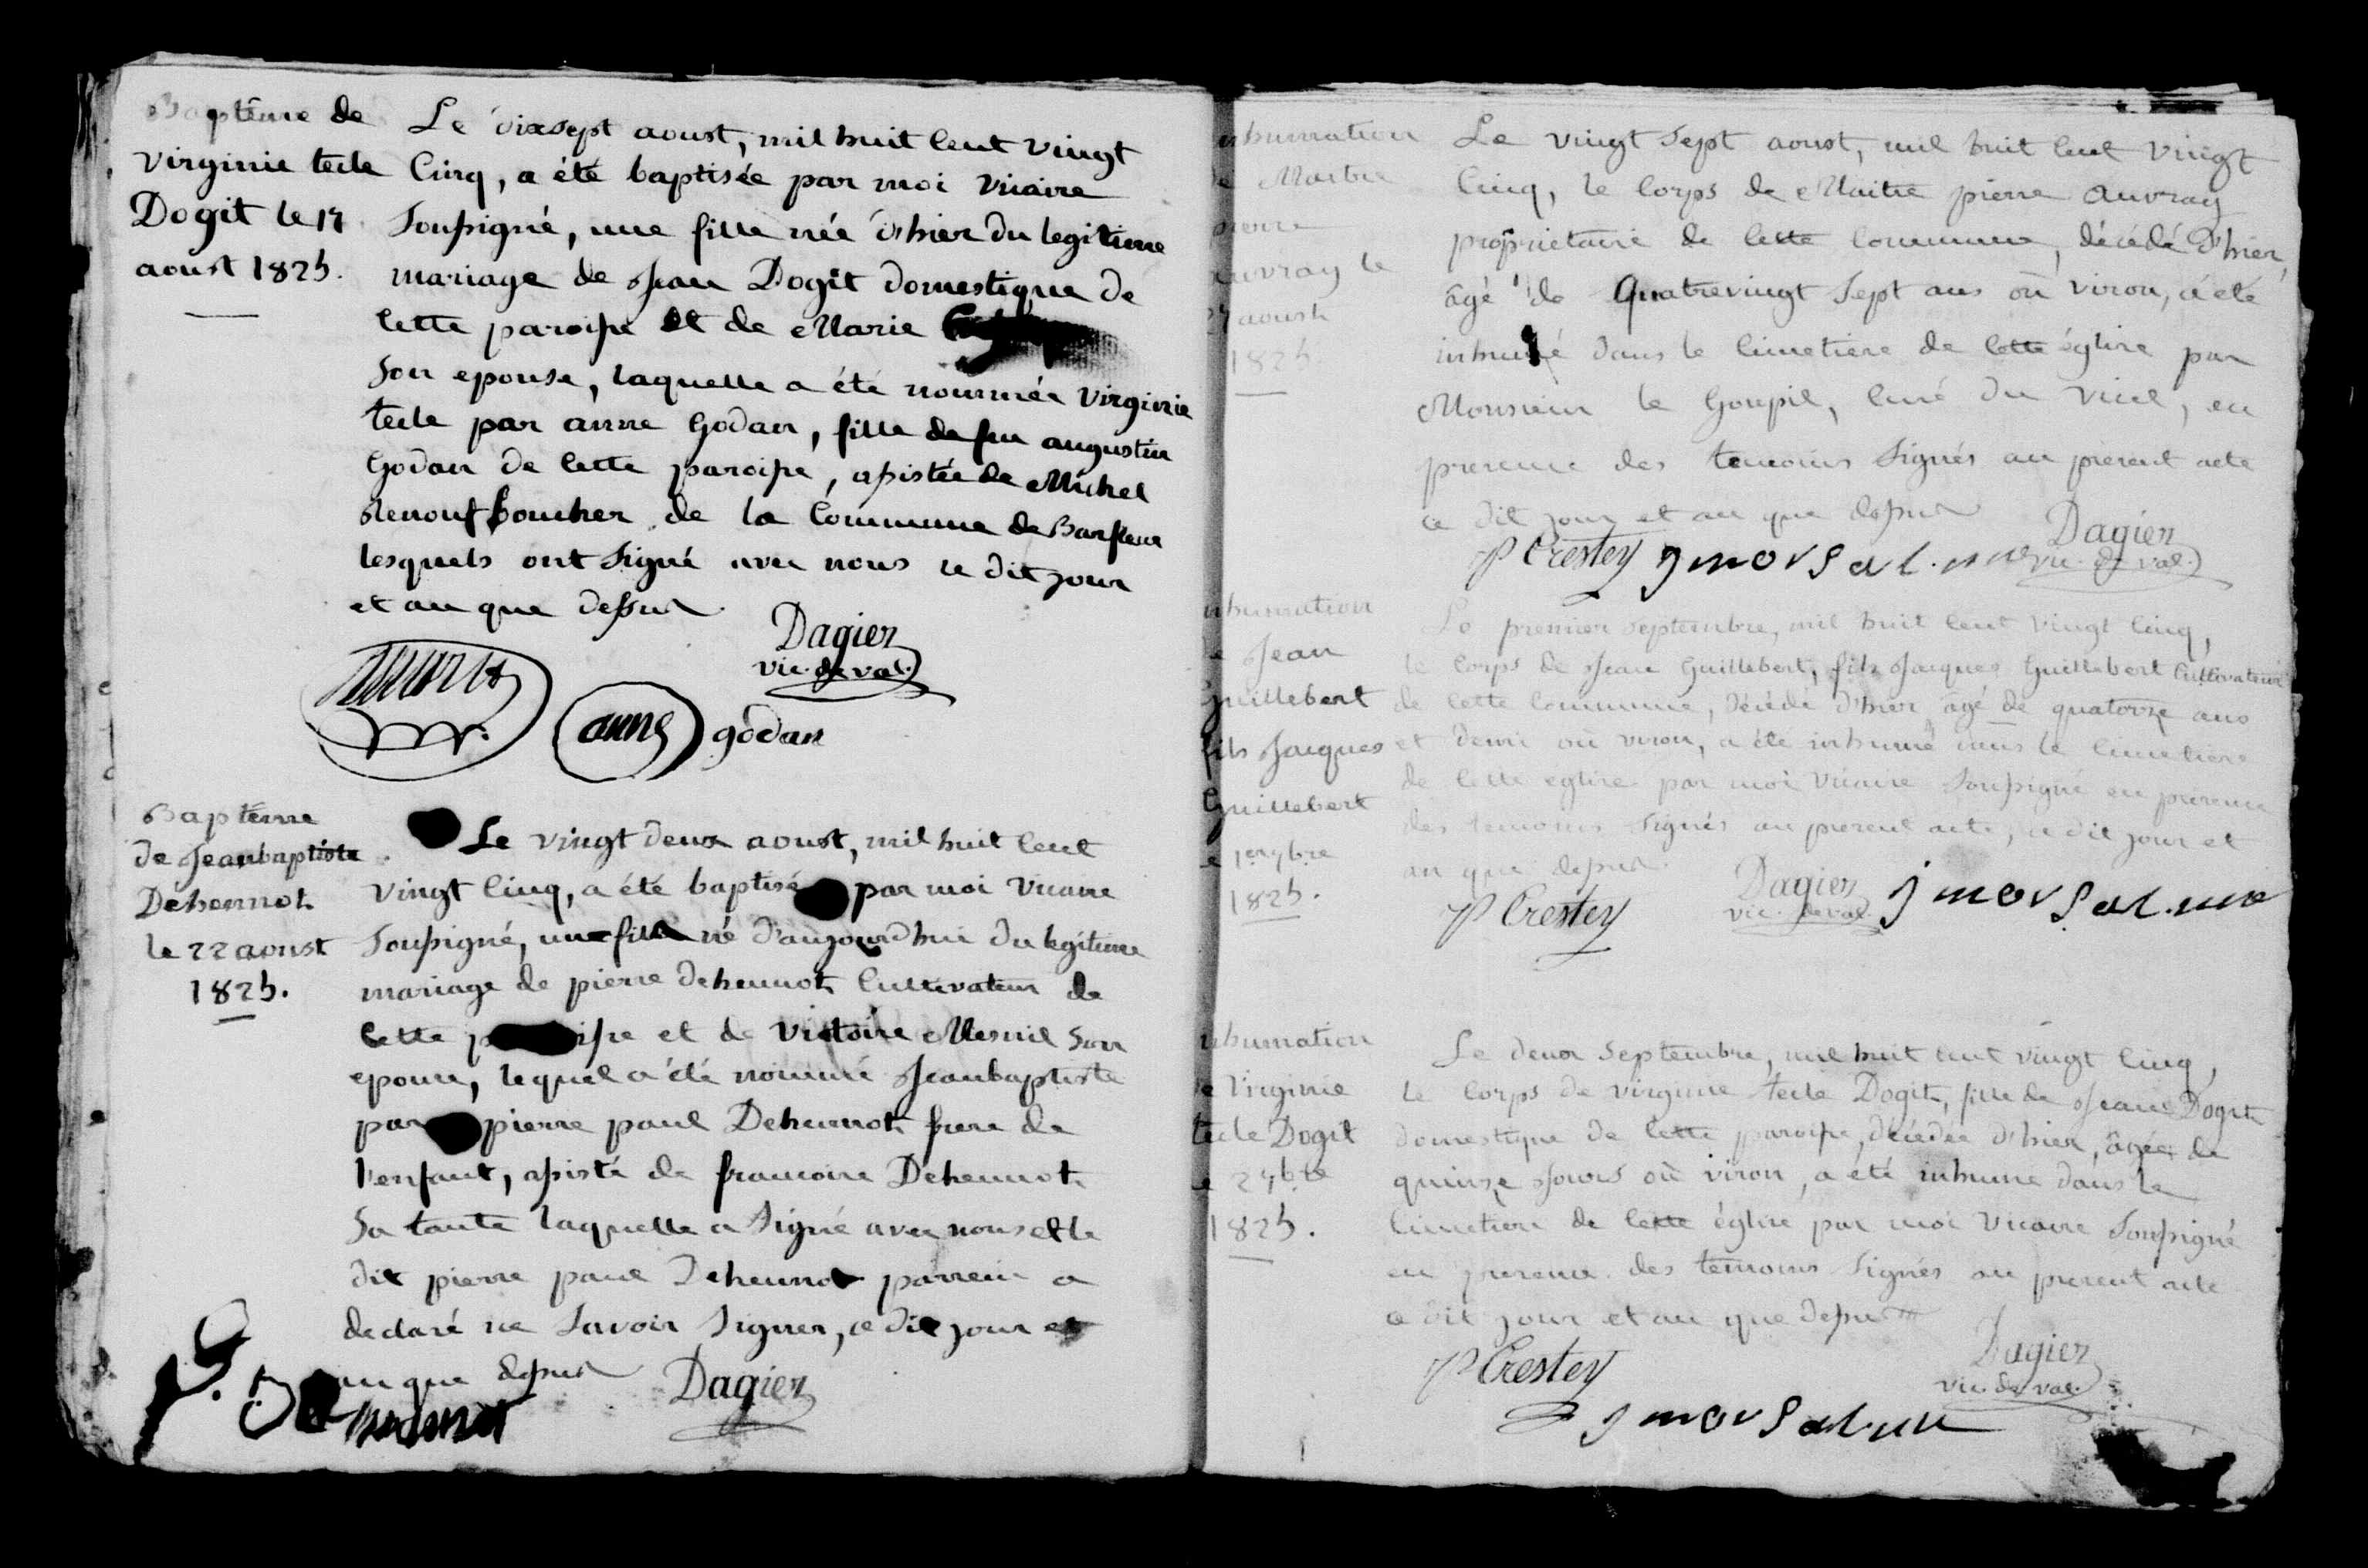 Baptême de
virginie tecle
Dogit le 17
aoust 1825.
Le dixsept aoust, mil huit cent vingt
cinq, a été baptisée par moi vicaire
soussigné, une fille née d'hier du legitime
mariage de Jean Dogit domestique de
cette paroisse et de Marie
son epouse, laquelle a été nommée virginie
tecle par anne Godan, fille de feu augustin
Godan de cette paroisse, assistée de Michel
Renouf boucher de la commune de Barfleur
lesquels ont signé avec nous ce dit jour
et an que dessus
Dagier
vic. de val.
anne godan
Baptême
de Jeanbaptiste
Dehennot
le 22 aoust
1825.
Le vingt deux aoust, mil huit cent
vingt cinq, a été baptisé par moi vicaire
soussigné, un fils né d'aujourdhui du legitime
mariage de pierre dehennot cultivateur de
cette paroisse et de victoire Mesnil son
epouse, lequel a été nommé Jeanbaptiste
par pierre paul Dehennot frere de
l'enfant, assisté de francoise Dehennot
sa tante laquelle a signé avec nous et le
dit pierre paul Dehennot parrein a
declaré ne savoir signer, ce dit jour et
an que dessus
Dagier
inhumation
de Maitre
pierre
auvray le
27 aoust
1825
Le vingt sept aoust, mil huit cent vingt
cinq, le corps de Maitre pierre auvray
proprietaire de cette commune, décédé d'hier,
âgé de Quatrevingt sept ans où viron, a été
inhumé dans le cimetiere de cette église par
Monsieur le Goupil, curé du vicel, en
presence des temoins signés au present acte
ce dit jour et an que dessus
Dagier
vic. de val.
P Crestey
inhumation
de Jean
Guillebert
fils Jacques
Guillebert
le 1er 7bre
1825.
Le premier septembre, mil huit cent vingt cinq,
le corps de Jean Guillebert, fils Jacques Guillebert cultivateur
de cette commune, décédé d'hier, âgé de quatorze ans
et demi où viron, a été inhumé dans le cimetiere
de cette église par moi vicaire soussigné en presence
des temoins signés au present acte, ce dit jour et
an que dessus
P Crestey
Dagier
vic. de val.
inhumation
de virginie
tecle Dogit
le 2 7bre
1825.
Le deux septembre, mil huit cent vingt cinq,
le corps de virginie tecle Dogit, fille de Jean Dogit
domestique de cette paroisse, décédée d'hier, âgée de
quinze jours où viron, a été inhume dans le
cimetiere de cette église par moi vicaire soussigné
en presence des temoins signés au present acte
ce dit jour et an que dessus
P Crestey
Dagier
vic. de val.